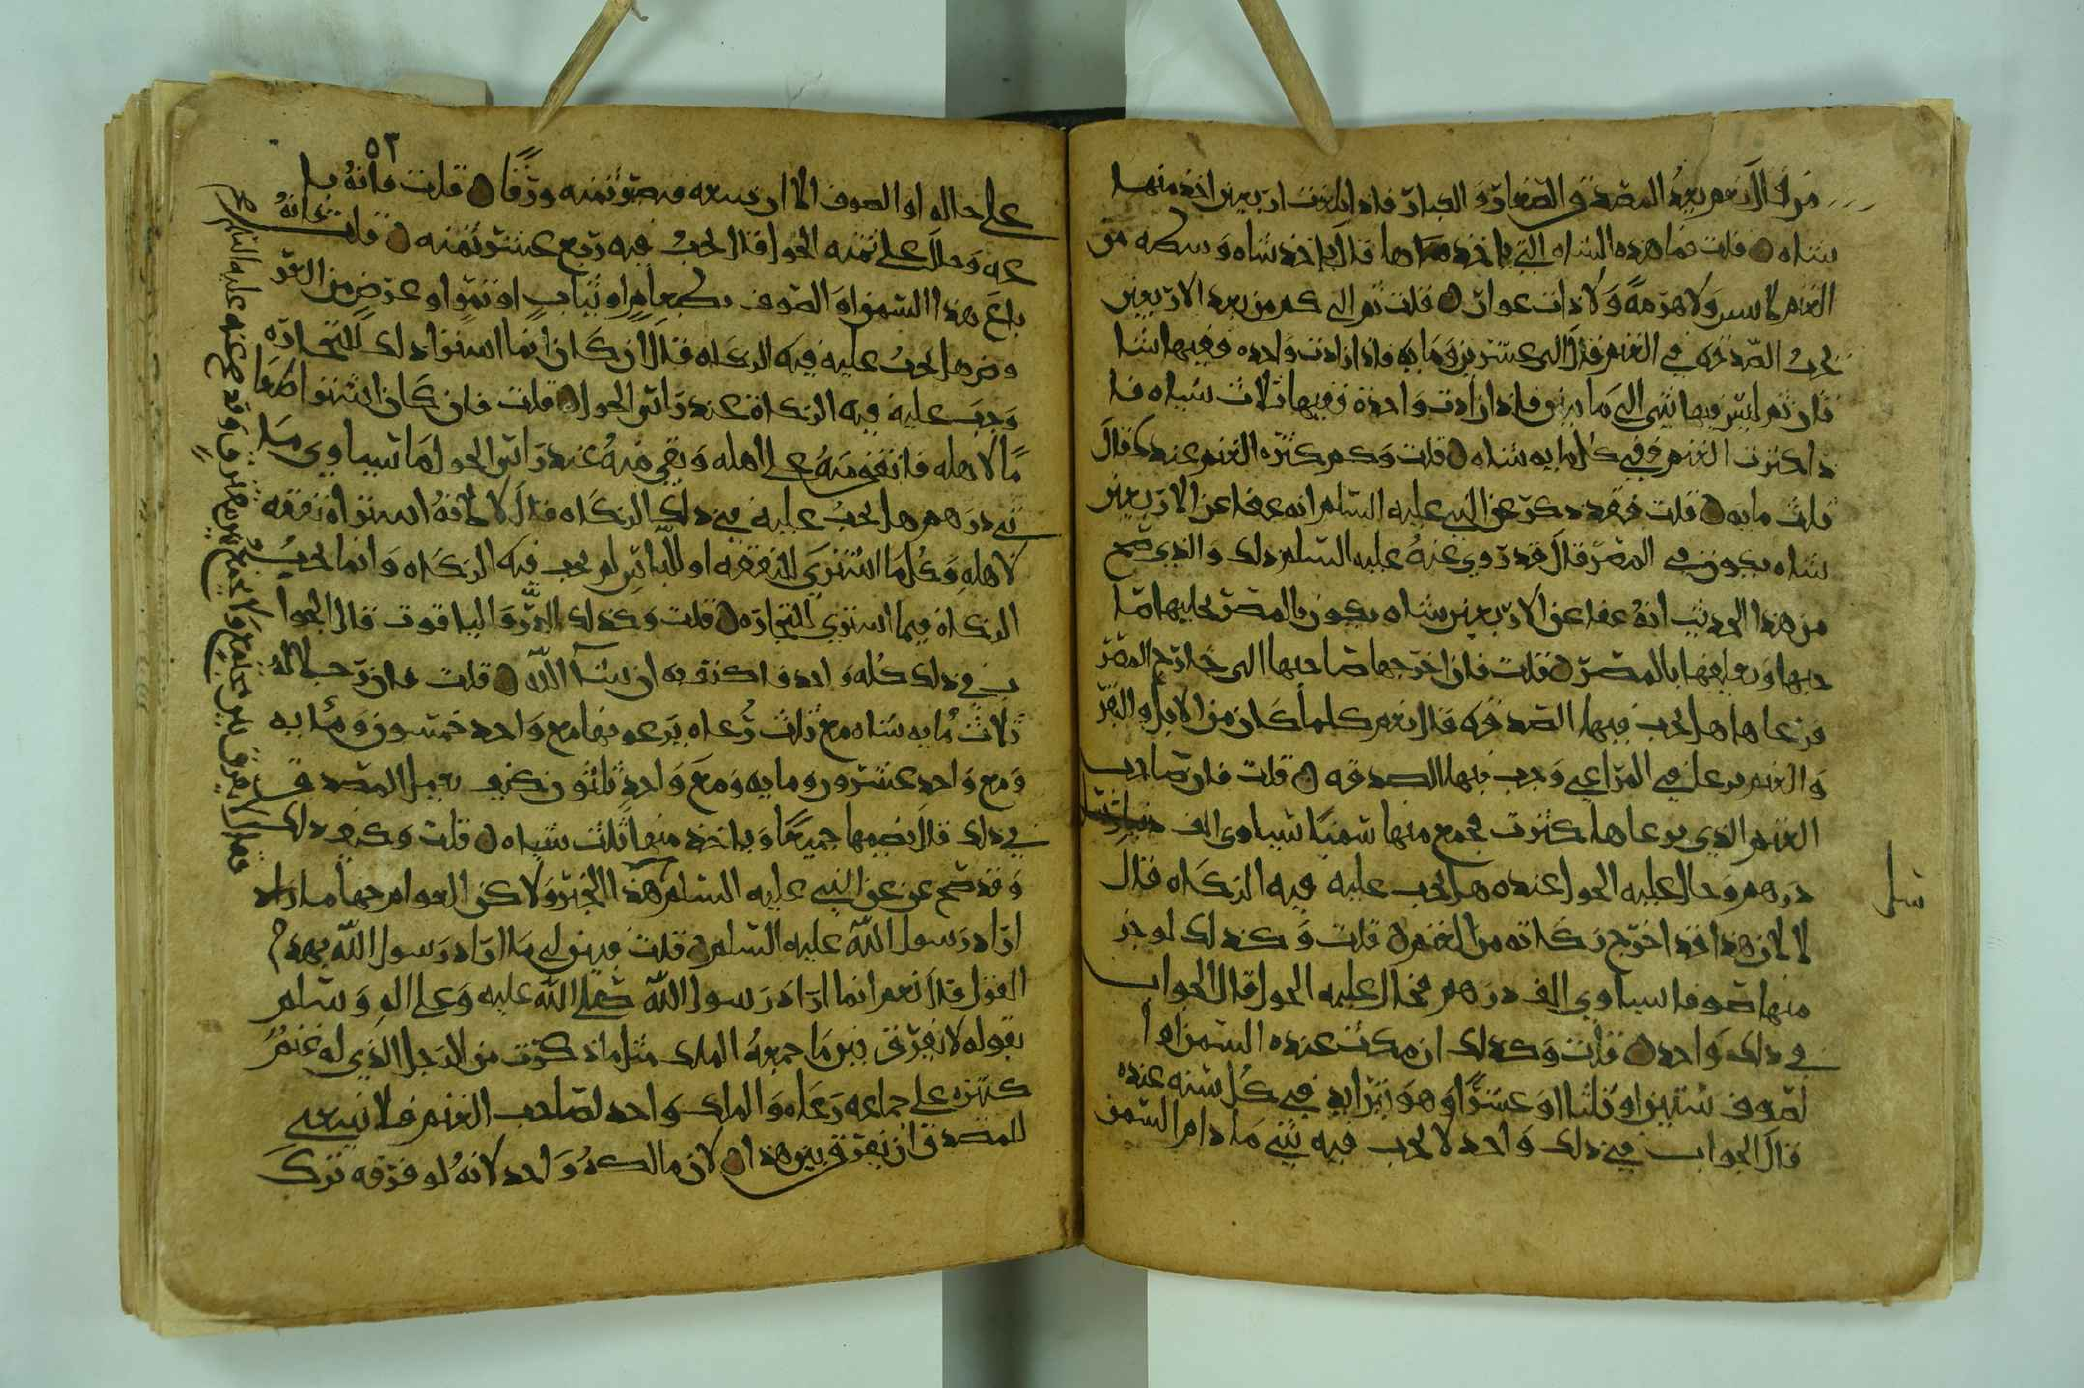 من لانعم يعد المصدق الصغار والكبار فاذا بلغت اربعين اخذ منها
شاه قلت فما هذه الشاه التي ياخذها قال ياخذ شاه وسطه من
الغنم لا ولا هرمة ولا ذات عوار قلت ثم الى كم من بعد الاربعين
تجب الصدقه في الغنم قال الى عشرين ومايه فاذا زادت واحده ففيها شا
تان ثم ليس فيها شي الى مايتين فاذا زادت واحدة ففيها ثلاث شياه فا
ذا كثرت الغنم ففي كل مايه شاه قلت وكم كثره الغنم عندك قال
ثلث مايه قلت فقد ذكر عن النبي عليه السلم انه عفا عن الاربعين
شاه يكون في المصر قال قد روي عنه عليه السلم ذلك والذي صح
من هذا الحديث انه عفا عن الاربعين شاه يكون بالمصر يحلبها صا
حبها ويعلفها بالمصر قلت فان اخرجها صاحبها الى خارج المصر
فرعاها هل تجب فيها الصدقه قال نعم كلما كان من الابل والبقر
والغنم يرعا في المراعي وجب فيها الصدقه قلت فان صاحب
الغنم الذي يرعاها كثرت فجمع منها سمنا يساوي الف
درهم وحال عليه الحول عنده هل تجب عليه فيه الزكاه قال
لا لان هذا قد اخرج زكاته من الغنم قلت وكذلك لو جز
منها صوفا يساوي الف درهم فحال عليه الحول قال الجواب
في ذلك واحد قلت وكذلك ان مكث عنده السمن او ا
لصوف سنتين او ثلثا او عشرا وهو يتزايد في كل سنه عنده
قال الجواب في ذلك واحد لا تجب فيه شي ما دام السمن
٥٢
على حاله او الصوف الا ان يبيعه فيصير ثمنه ورقا قلت فانه با
عه وحال على ثمنه الحول قال تجب فيه ربع عشر ثمنه قلت فانه
باع هذا السمن او الصوف بطعام او ثياب او تمر او عرض من العر
وض هل تجب عليه فيه الزكاه قال ان كان انما اشترا ذلك للتجاره
وجب عليه فيه الزكاة عند راس الحول قلت فان كان اشترا طعا
ما لاهله فانفق منه على اهله وبقي منه عند راس الحول ما يساوي ميا
تي درهم هل تجب عليه في ذلك الزكاه قال لا لانه اشتراه نفقه
لاهله وكلما اشتري للنفقه او للباس لم تجب فيه الزكاه وانما تجب
الزكاة فيما اشتري للتجاره قلت وكذلك الدر والياقوت قال الجوا
ب في ذلك كله واحد فاكتف به ان شآ الله قلت فان رجلا له
ثلاث مايه شاه مع ثلث رعاه يرعونها مع واحد خمسون ومايه
ومع واحد عشرون ومايه ومع واحد ثلثون كيف يعمل المصدق
في ذلك قال يضمها جميعا وياخذ منها ثلث شياه قلت وكيف ذلك
وقد صح عن النبي عليه السلم هذا الخبر ولاكن العوام جهلوا ما
اراد رسول الله عليه السلم قلت فبين لي ما اراد رسول الله بهذا
القول قال نعم انما اراد رسول الله صلى الله عليه وعلى اله وسلم
بقوله لا يفرق بين ما جمعه الملك مثل ما ذكرت من الرجل الذي له غنم
كثيره على جماعه رعاه والملك واحد لصاحب الغنم فلا ينبغي
للمصدق ان يفرق بين هذا لان مالكه واحد لانه لو فرقه ترك